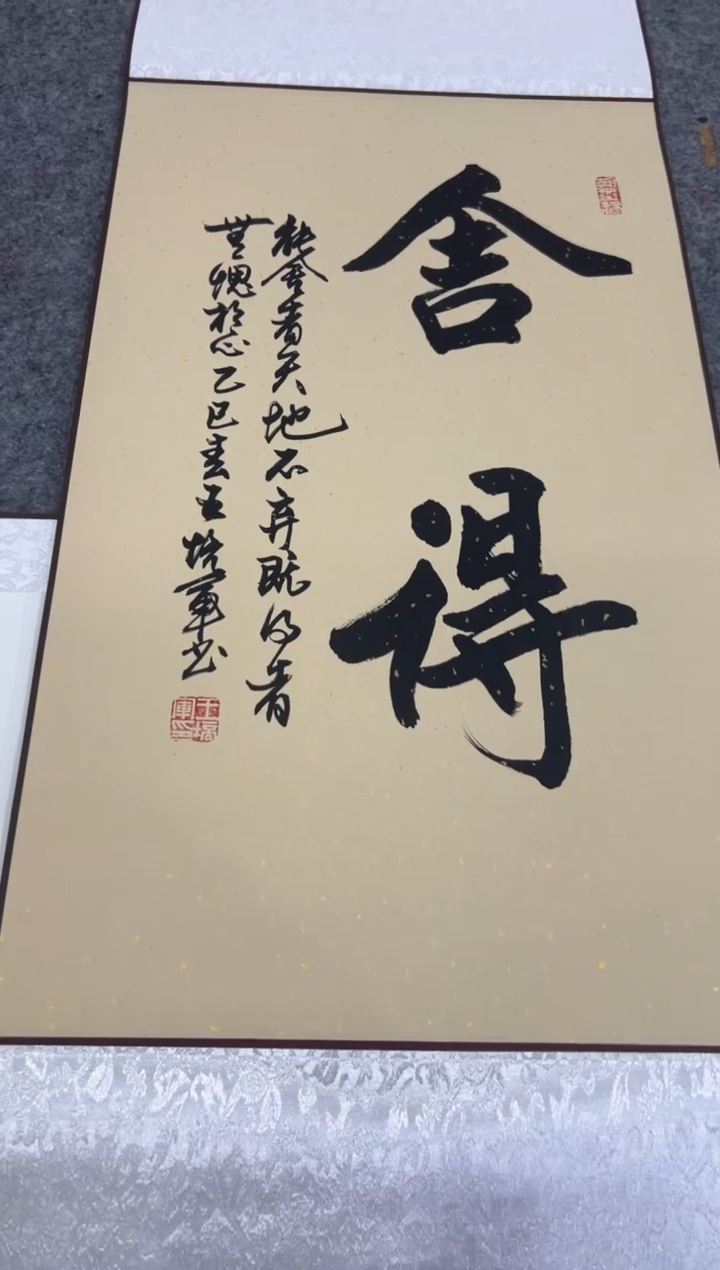 舍得
能舍者天地不弃既得者
無愧於心乙巳春王培軍书
王培軍印